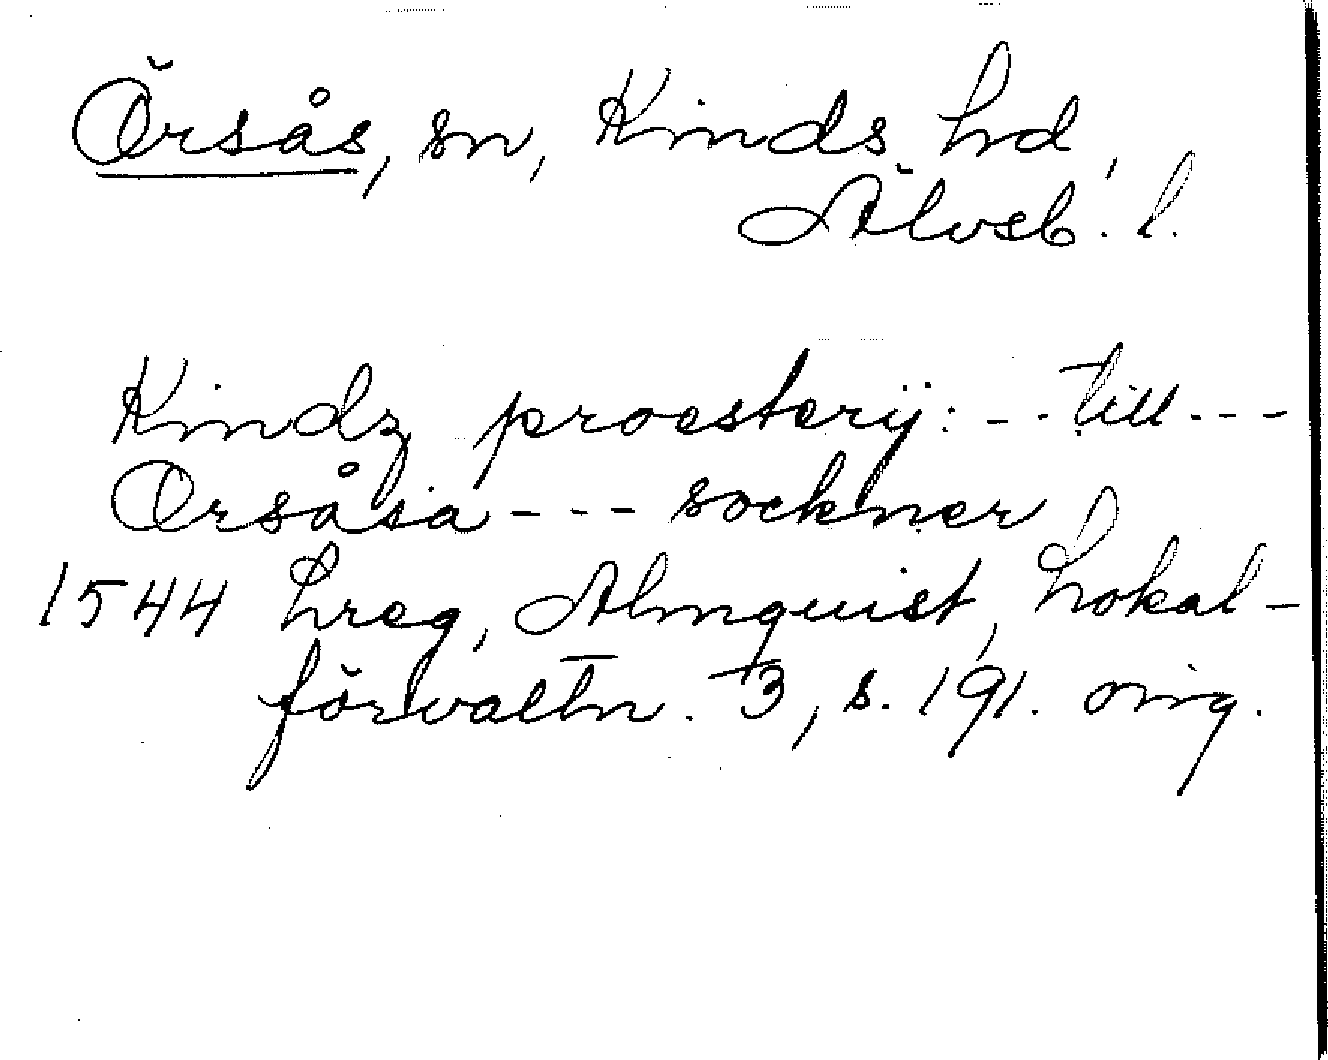 Örsås, sn, Kinds hd,
Älvsb. l.
Kindz proesterij: --- till ---
Ørsåsa --- sockner
1544 Lreg, Almquist, Lokal-
förvaltn. 3, s. 191. orig.